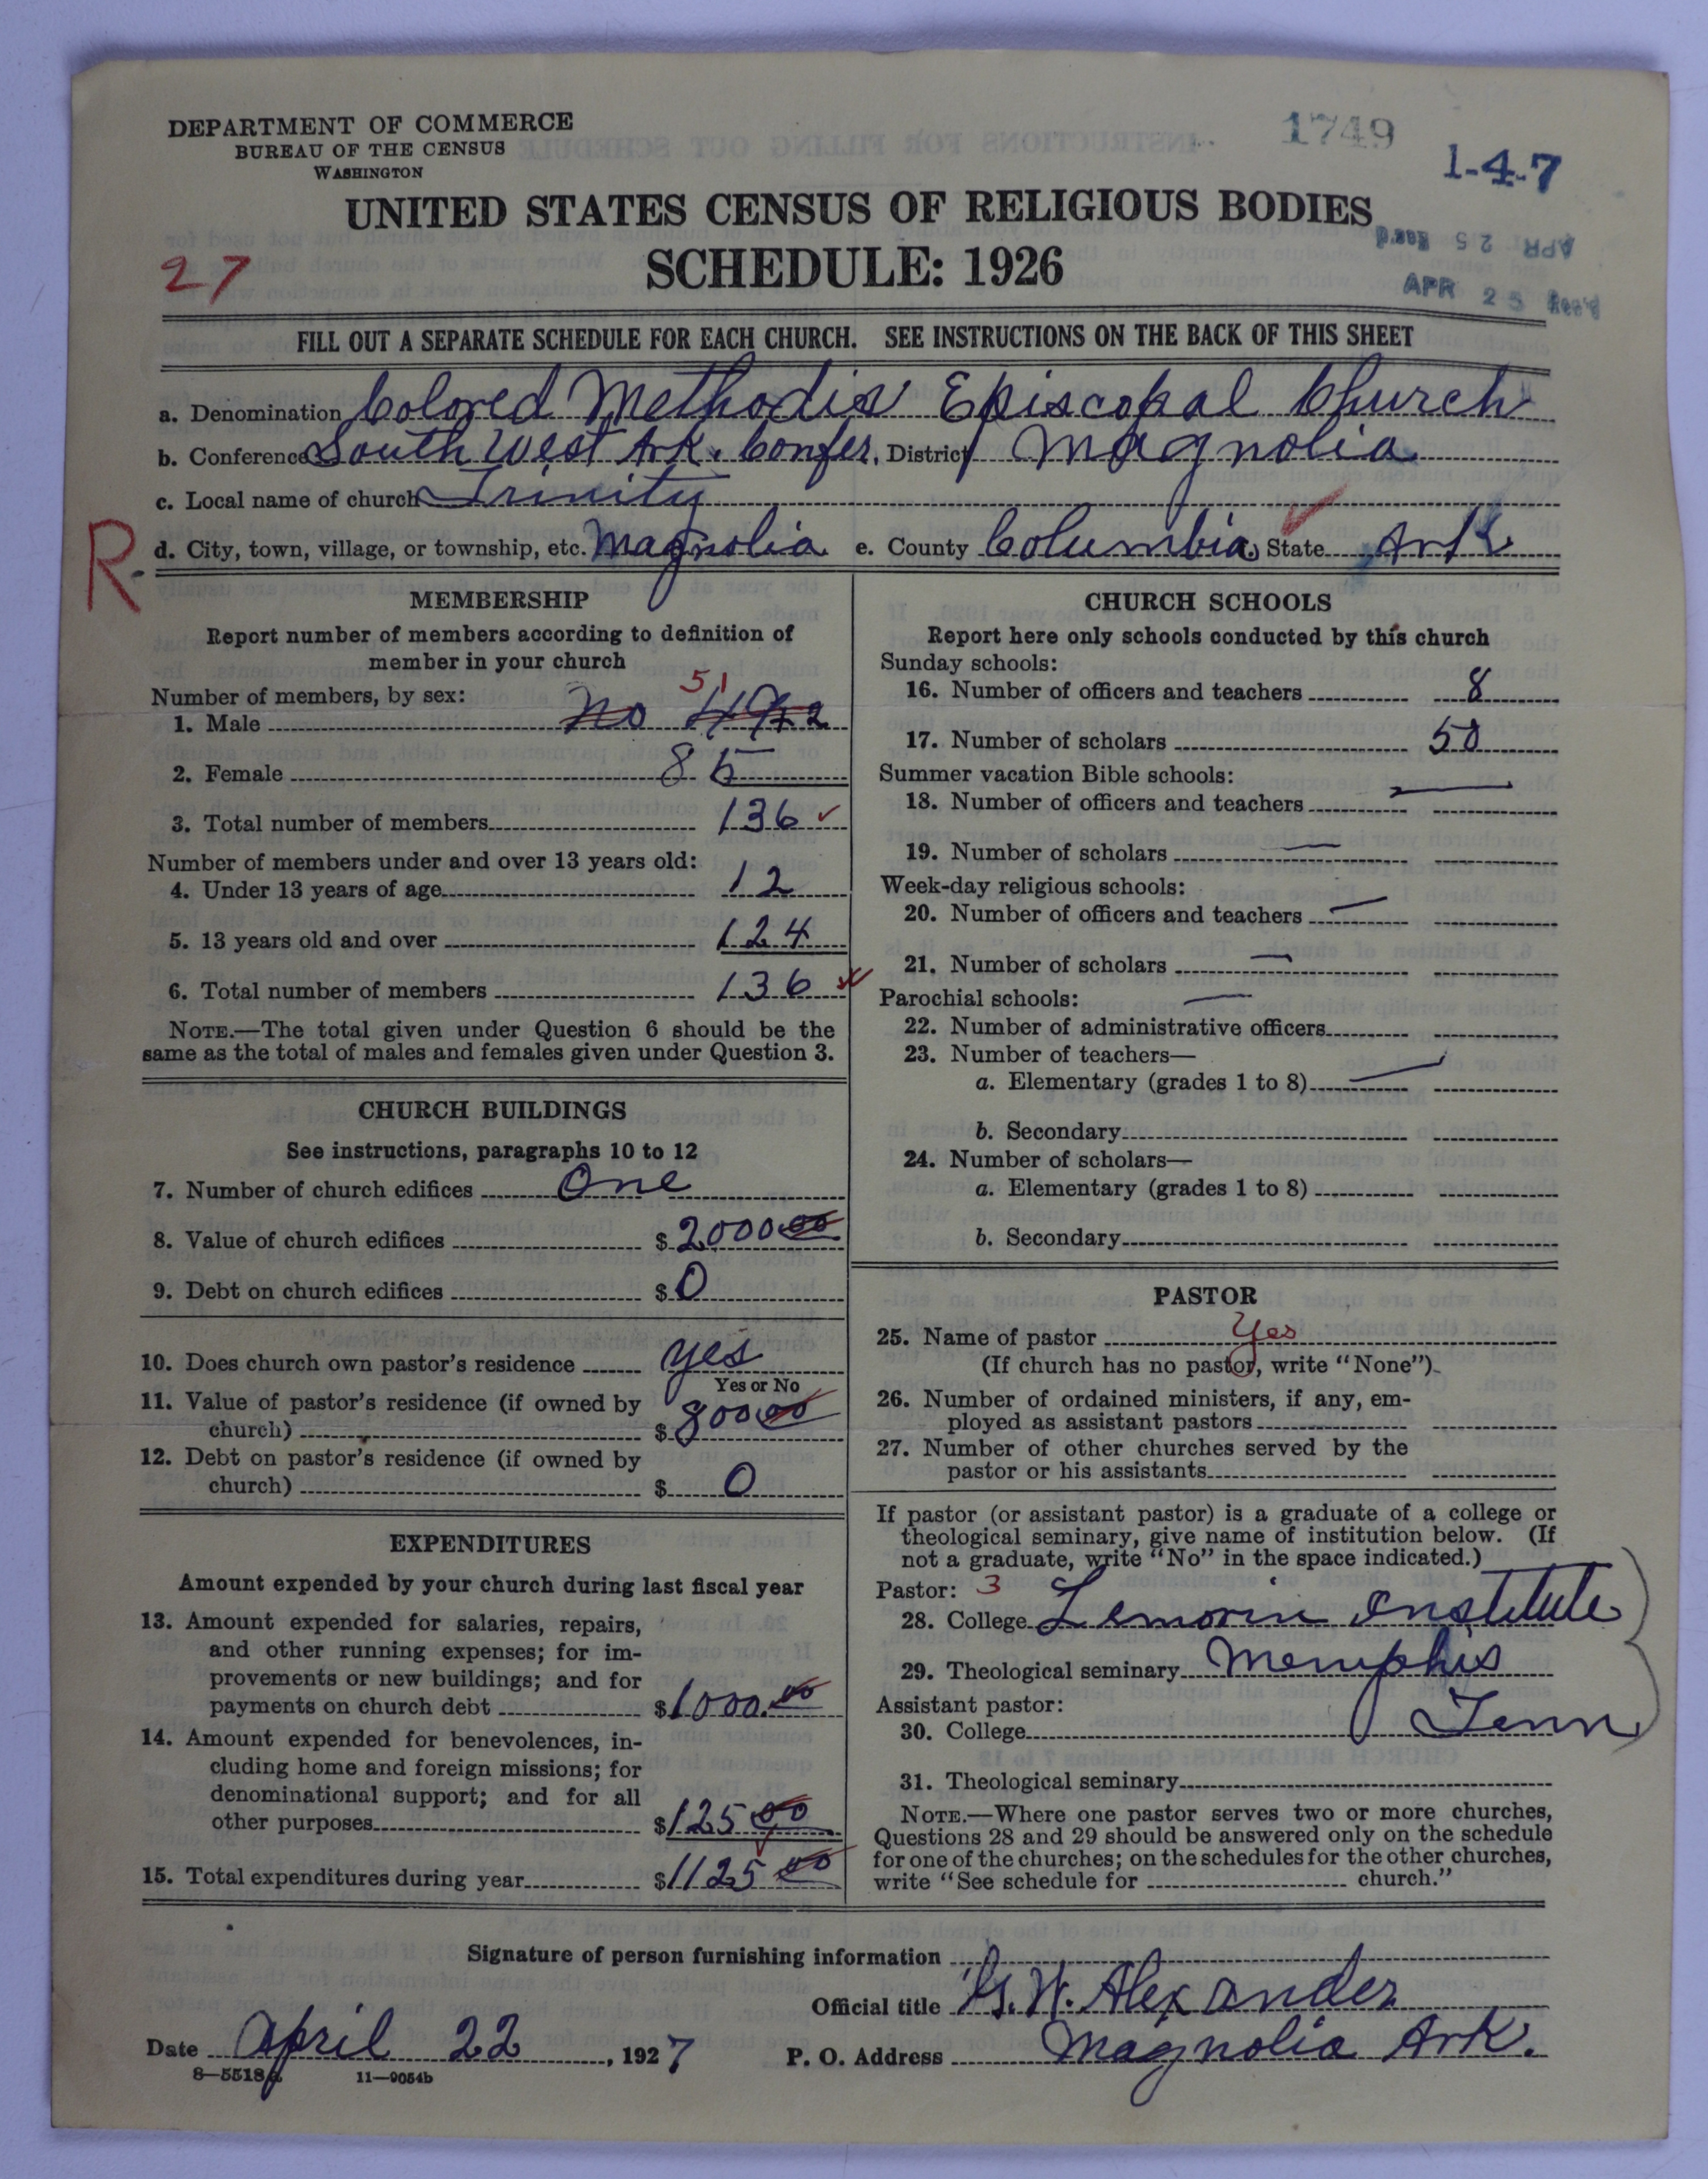 DEPARTMENT OF COMMERCE
BUREAU OF THE CENSUS
WASHINGTON
1749
1-4-7
UNITED STATES CENSUS OF RELIGIOUS BODIES
SCHEDULE: 1926
27
APR 25 Rec'd
APR 25 Rec'd
FILL OUT A SEPARATE SCHEDULE FOR EACH CHURCH. SEE INSTRUCTIONS ON THE BACK OF THIS SHEET
a. Denomination Colored Methodis Episcopal Church
b. Conference South West Ark. Confer. District Magnolia
c. Local name of church Trinity
R d. City, town, village, or township, etc. Magnolia e. County Columbia State Ark
MEMBERSHIP
Report number of members according to definition of
member in your church
Number of members, by sex:
51
1. Male no
2. Female 85
3. Total number of members 136
Number of members under and over 13 years old:
4. Under 13 years of age 12
5. 13 years old and over 124
6. Total number of members 136
NOTE.—The total given under Question 6 should be the
same as the total of males and females given under Question 3.
CHURCH BUILDINGS
See instructions, paragraphs 10 to 12
7. Number of church edifices One
8. Value of church edifices $ 2000 00
9. Debt on church edifices $ 0
10. Does church own pastor's residence yes
Yes or No
11. Value of pastor's residence (if owned by
church) $ 800 00
12. Debt on pastor's residence (if owned by
church) $ 0
EXPENDITURES
Amount expended by your church during last fiscal year
13. Amount expended for salaries, repairs,
and other running expenses; for im-
provements or new buildings; and for
payments on church debt $ 1000.00
14. Amount expended for benevolences, in-
cluding home and foreign missions; for
denominational support; and for all
other purposes $ 125 00
15. Total expenditures during year $ 1125 00
CHURCH SCHOOLS
Report here only schools conducted by this church
Sunday schools:
16. Number of officers and teachers 8
17. Number of scholars 50
Summer vacation Bible schools:
18. Number of officers and teachers —
19. Number of scholars —
Week-day religious schools:
20. Number of officers and teachers —
21. Number of scholars —
Parochial schools: —
22. Number of administrative officers
23. Number of teachers—
a. Elementary (grades 1 to 8) —
b. Secondary
24. Number of scholars—
a. Elementary (grades 1 to 8)
b. Secondary
PASTOR
25. Name of pastor Yes
(If church has no pastor, write "None")
26. Number of ordained ministers, if any, em-
ployed as assistant pastors
27. Number of other churches served by the
pastor or his assistants
If pastor (or assistant pastor) is a graduate of a college or
theological seminary, give name of institution below. (If
not a graduate, write "No" in the space indicated.)
Pastor: 3
28. College Lemorin Institute
29. Theological seminary Memphis
Assistant pastor:
30. College Tenn
31. Theological seminary
NOTE.—Where one pastor serves two or more churches,
Questions 28 and 29 should be answered only on the schedule
for one of the churches; on the schedules for the other churches,
write "See schedule for church."
Signature of person furnishing information
Official title G. W. Alexander
Date April 22, 1927 P. O. Address Magnolia Ark.
8—5518a 11—9054b